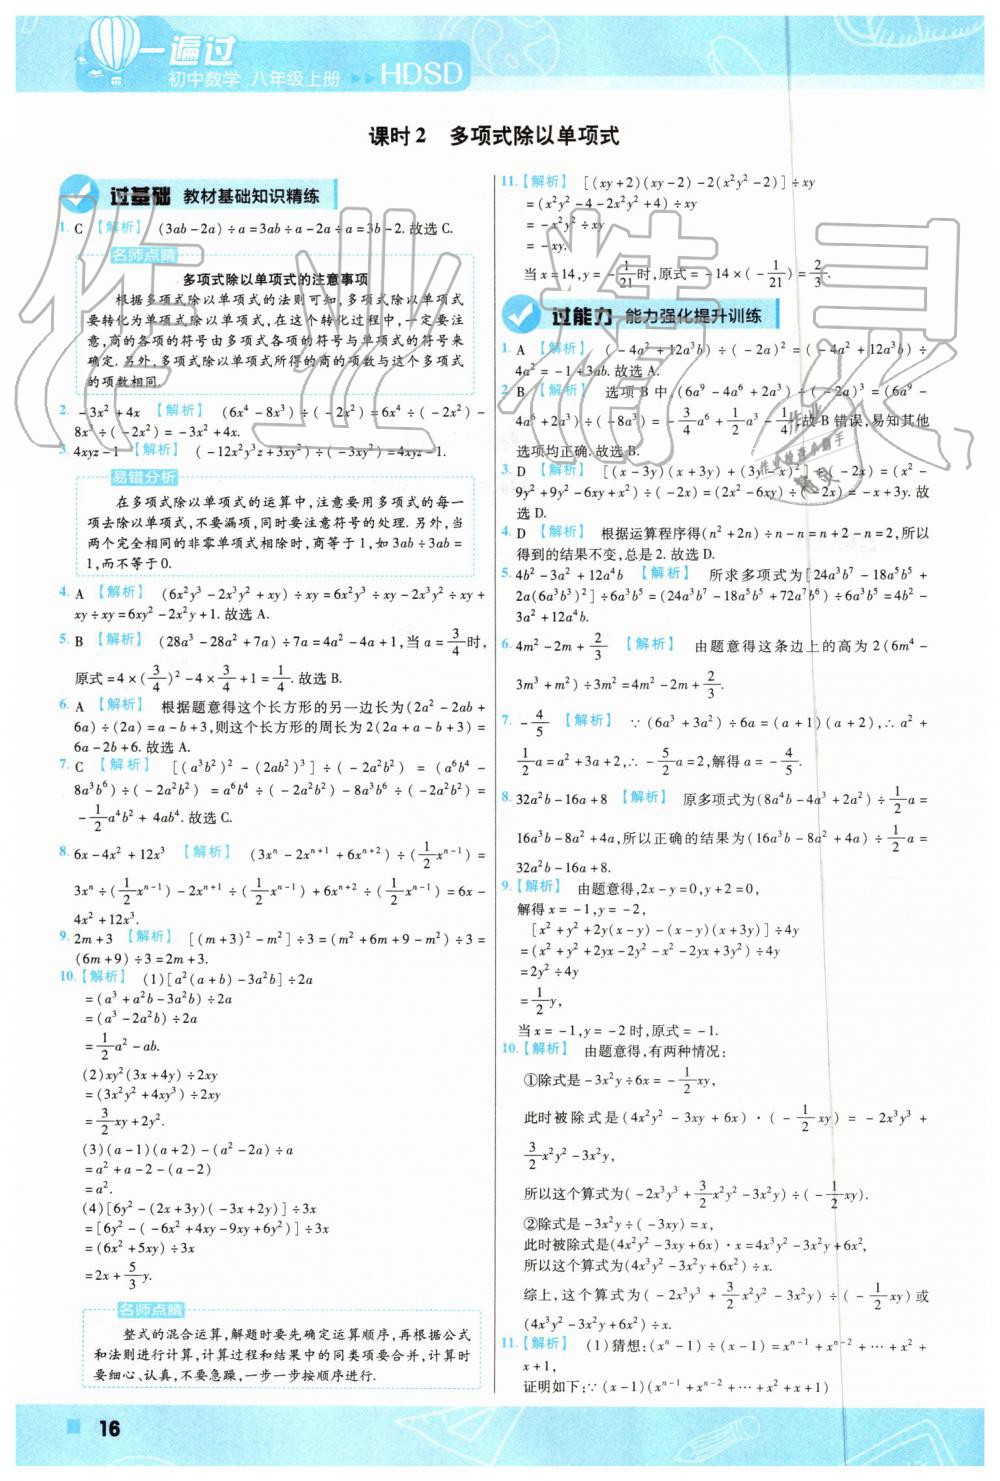 一遍过
初中数学 八年级上册 HDSD
课时2 多项式除以单项式
过基础 教材基础知识精练
1. C 【解析】 (3ab-2a)÷a=3ab÷a-2a÷a=3b-2.故选C.
名师点睛
多项式除以单项式的注意事项
根据多项式除以单项式的法则可知,多项式除以单项式
要转化为单项式除以单项式,在这个转化过程中,一定要注
意,商的各项的符号由多项式各项的符号与单项式的符号来
确定.另外,多项式除以单项式所得的商的项数与这个多项式
的项数相同.
2. -3x²+4x 【解析】 (6x⁴-8x³)÷(-2x²)=6x⁴÷(-2x²)-
8x³÷(-2x²)=-3x²+4x.
3. 4xyz-1 【解析】 (-12x²y³z+3xy²)÷(-3xy²)=4xyz-1.
易错分析
在多项式除以单项式的运算中,注意要用多项式的每一
项去除以单项式,不要漏项,同时要注意符号的处理.另外,当
两个完全相同的非零单项式相除时,商等于1,如3ab÷3ab=
1,而不等于0.
4. A 【解析】 (6x²y³-2x³y²+xy)÷xy=6x²y³÷xy-2x³y²÷xy+
xy÷xy=6xy²-2x²y+1.故选A.
5. B 【解析】 (28a³-28a²+7a)÷7a=4a²-4a+1,当a=3/4时,
原式=4×(3/4)²-4×3/4+1=1/4.故选B.
6. A 【解析】 根据题意得这个长方形的另一边长为(2a²-2ab+
6a)÷(2a)=a-b+3,则这个长方形的周长为2(2a+a-b+3)=
6a-2b+6.故选A.
7. C 【解析】 [(a³b²)²-(2ab²)³]÷(-2a²b²)=(a⁶b⁴-
8a³b⁶)÷(-2a²b²)=a⁶b⁴÷(-2a²b²)-8a³b⁶÷(-2a²b²)=
-1/2a⁴b²+4ab⁴.故选C.
8. 6x-4x²+12x³ 【解析】 (3xⁿ-2xⁿ⁺¹+6xⁿ⁺²)÷(1/2xⁿ⁻¹)=
3xⁿ÷(1/2xⁿ⁻¹)-2xⁿ⁺¹÷(1/2xⁿ⁻¹)+6xⁿ⁺²÷(1/2xⁿ⁻¹)=6x-
4x²+12x³.
9. 2m+3 【解析】 [(m+3)²-m²]÷3=(m²+6m+9-m²)÷3=
(6m+9)÷3=2m+3.
10.【解析】 (1)[a²(a+b)-3a²b]÷2a
=(a³+a²b-3a²b)÷2a
=(a³-2a²b)÷2a
=1/2a²-ab.
(2)xy²(3x+4y)÷2xy
=(3x²y²+4xy³)÷2xy
=3/2xy+2y².
(3)(a-1)(a+2)-(a²-2a)÷a
=a²+a-2-(a-2)
=a².
(4)[6y²-(2x+3y)(-3x+2y)]÷3x
=[6y²-(-6x²+4xy-9xy+6y²)]÷3x
=(6x²+5xy)÷3x
=2x+5/3y.
名师点睛
整式的混合运算,解题时要先确定运算顺序,再根据公式
和法则进行计算,计算过程和结果中的同类项要合并,计算时
要细心、认真,不要急躁,一步一步按顺序进行.
16
11.【解析】 [(xy+2)(xy-2)-2(x²y²-2)]÷xy
=(x²y²-4-2x²y²+4)÷xy
=-x²y²÷xy
=-xy.
当x=14,y=-1/21时,原式=-14×(-1/21)=2/3.
过能力 能力强化提升训练
1. A 【解析】 (-4a²+12a³b)÷(-2a)²=(-4a²+12a³b)÷
4a²=-1+3ab.故选A.
2. B 【解析】 选项B中,(6a⁹-4a⁶+2a³)÷(-2a)³=(6a⁹-
4a⁶+2a³)÷(-8a³)=-3/4a⁶+1/2a³-1/4,故B错误,易知其他
选项均正确.故选B.
3. D 【解析】 [(x-3y)(x+3y)+(3y-x)²]÷(-2x)=(x²-
9y²+9y²-6xy+x²)÷(-2x)=(2x²-6xy)÷(-2x)=-x+3y.故
选D.
4. D 【解析】 根据运算程序得(n²+2n)÷n-n=n+2-n=2,所以
得到的结果不变,总是2.故选D.
5. 4b²-3a²+12a⁴b 【解析】 所求多项式为[24a³b⁷-18a⁵b⁵+
2a(6a³b³)²]÷6a³b⁵=(24a³b⁷-18a⁵b⁵+72a⁷b⁶)÷6a³b⁵=4b²-
3a²+12a⁴b.
6. 4m²-2m+2/3 【解析】 由题意得这条边上的高为2(6m⁴-
3m³+m²)÷3m²=4m²-2m+2/3.
7. -4/5 【解析】 ∵(6a³+3a²)÷6a=(a+1)(a+2),∴a²+
1/2a=a²+3a+2,∴-5/2a=2,解得a=-4/5.
8. 32a²b-16a+8 【解析】 原多项式为(8a⁴b-4a³+2a²)÷1/2a=
16a³b-8a²+4a,所以正确的结果为(16a³b-8a²+4a)÷1/2a=
32a²b-16a+8.
9.【解析】 由题意得,2x-y=0,y+2=0,
解得x=-1,y=-2,
[x²+y²+2y(x-y)-(x-y)(x+3y)]÷4y
=(x²+y²+2yx-2y²-x²-2yx+3y²)÷4y
=2y²÷4y
=1/2y,
当x=-1,y=-2时,原式=-1.
10.【解析】 由题意得,有两种情况:
①除式是-3x²y÷6x=-1/2xy,
此时被除式是(4x²y²-3xy+6x)·(-1/2xy)=-2x³y³+
3/2x²y²-3x²y,
所以这个算式为(-2x³y³+3/2x²y²-3x²y)÷(-1/2xy).
②除式是-3x²y÷(-3xy)=x,
此时被除式是(4x²y²-3xy+6x)·x=4x³y²-3x²y+6x²,
所以这个算式为(4x³y²-3x²y+6x²)÷x.
综上,这个算式为(-2x³y³+3/2x²y²-3x²y)÷(-1/2xy)或
(4x³y²-3x²y+6x²)÷x.
11.【解析】 (1)猜想:(xⁿ-1)÷(x-1)=xⁿ⁻¹+xⁿ⁻²+…+x²+
x+1,
证明如下:∵(x-1)(xⁿ⁻¹+xⁿ⁻²+…+x²+x+1)
作业精灵